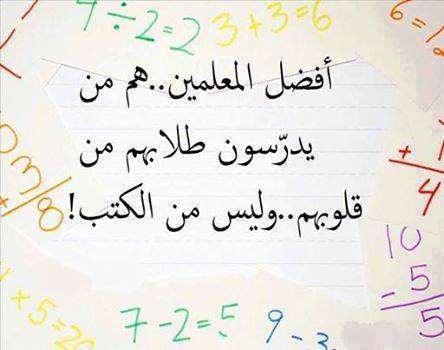 4 ÷ 2 = 2
3 + 3 = 6
6 =
أفضل المعلمين..هم من
يدرّسون طلابهم من
قلوبهم..وليس من الكتب!
3/8
+ 1
4
10
- 5
5
+ 5 = 20
7 - 2 = 5
9 - 3